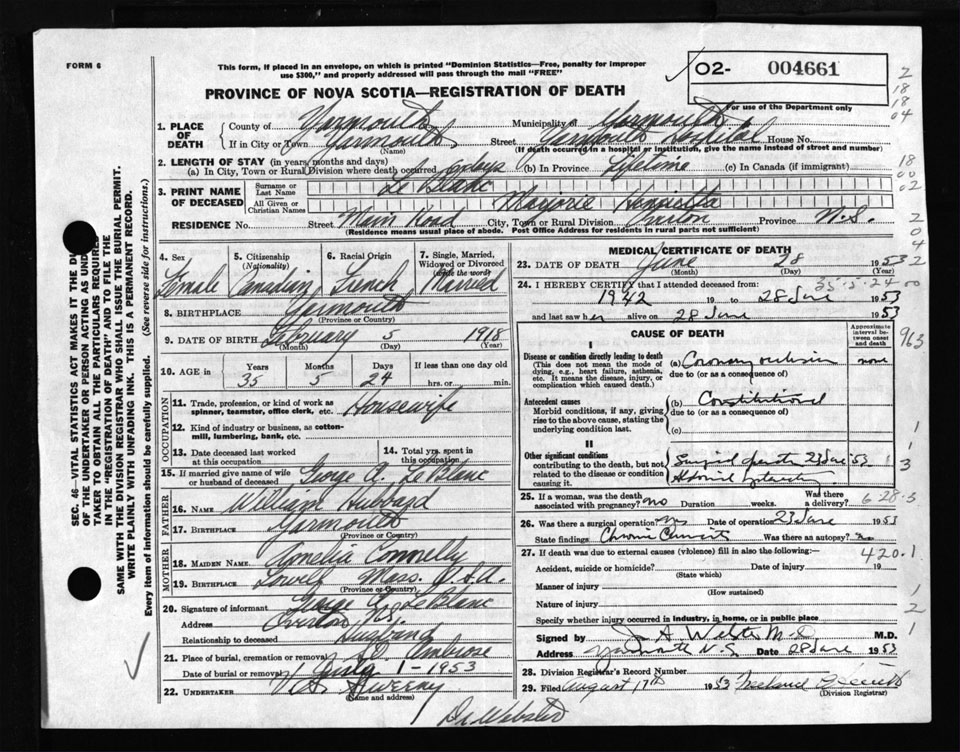 FORM 6
This form, if placed in an envelope, on which is printed "Dominion Statistics—Free, penalty for improper
use $300," and properly addressed will pass through the mail "FREE"
O2- 004661
For use of the Department only
PROVINCE OF NOVA SCOTIA—REGISTRATION OF DEATH
2
18
18
04
1. PLACE OF DEATH
County of Yarmouth Municipality of Yarmouth
If in City or Town Yarmouth Street Yarmouth Hospital House No.
(Name) (If death occurred in a hospital or institution, give the name instead of street and number)
2. LENGTH OF STAY (in years, months and days)
(a) In City, Town or Rural Division where death occurred 6 days (b) In Province Lifetime (c) In Canada (if immigrant)
18
00
02
3. PRINT NAME OF DECEASED
Surname or Last Name Le Blanc
All Given or Christian Names Marjorie Henrietta
RESIDENCE No. Street Main Road City, Town or Rural Division Overton Province N.S.
(Residence means usual place of abode. Post Office Address for residents in rural parts not sufficient)
2
0
4
2
SEC. 46—VITAL STATISTICS ACT MAKES IT THE DU
OF THE UNDERTAKER OR PERSON ACTING AS UND
TAKER TO OBTAIN ALL THE PARTICULARS REQUIRE
IN THE "REGISTRATION OF DEATH" AND TO FILE THE
SAME WITH THE DIVISION REGISTRAR WHO SHALL ISSUE THE BURIAL PERMIT.
WRITE PLAINLY WITH UNFADING INK. THIS IS A PERMANENT RECORD.
Every item of information should be carefully supplied. (See reverse side for instructions.)
4. Sex Female
5. Citizenship (Nationality) Canadian
6. Racial Origin French
7. Single, Married, Widowed or Divorced (write the word) Married
8. BIRTHPLACE Yarmouth
(Province or Country)
9. DATE OF BIRTH February 5 1918
(Month) (Day) (Year)
10. AGE in Years 35 Months 5 Days 24 If less than one day old hrs. or min.
OCCUPATION
11. Trade, profession, or kind of work as
spinner, teamster, office clerk, etc. Housewife
12. Kind of industry or business, as cotton-
mill, lumbering, bank, etc.
13. Date deceased last worked
at this occupation
14. Total yrs. spent in
this occupation
15. If married give name of wife
or husband of deceased George A. Le Blanc
FATHER
16. NAME William Hubbard
17. BIRTHPLACE Yarmouth
(Province or Country)
MOTHER
18. MAIDEN NAME Amelia Connelly
19. BIRTHPLACE Lowell Mass. U.S.A.
(Province or Country)
20. Signature of informant George Le Blanc
Address Overton
Relationship to deceased Husband
21. Place of burial, cremation or removal St. Ambrose
Date of burial or removal July 1 - 1953
22. UNDERTAKER Sweeny
(Name and address)
Dr Webster
MEDICAL CERTIFICATE OF DEATH
23. DATE OF DEATH June 28 1953
(Month) (Day) (Year)
35-5-24-00
24. I HEREBY CERTIFY that I attended deceased from:
1942 19 to 28 June 1953
and last saw her alive on 28 June 1953
CAUSE OF DEATH
Approximate interval between onset and death
963
I
Disease or condition directly leading to death
(This does not mean the mode of dying, e.g., heart failure, asthenia, etc. It means the disease, injury, or complication which caused death.)
(a) Coronary occlusion none
due to (or as a consequence of)
Antecedent causes
Morbid conditions, if any, giving rise to the above cause, stating the underlying condition last.
(b) Constitutional
due to (or as a consequence of)
(c)
II
Other significant conditions
contributing to the death, but not related to the disease or condition causing it.
Surgical operation 23 June 53
1
1
3
25. If a woman, was the death
associated with pregnancy? no Duration weeks. Was there a delivery?
6-28-3
26. Was there a surgical operation? yes Date of operation 23 June 1953
State findings Chronic Was there an autopsy? no
27. If death was due to external causes (violence) fill in also the following:—
420.1
Accident, suicide or homicide? Date of injury 19
(State which)
Manner of injury
(How sustained)
Nature of injury
Specify whether injury occurred in industry, in home, or in public place
1
2
1
Signed by A. Webster M.D. M.D.
Address Yarmouth N.S. Date 28 June 1953
28. Division Registrar's Record Number
29. Filed August 17th 1953
(Division Registrar)